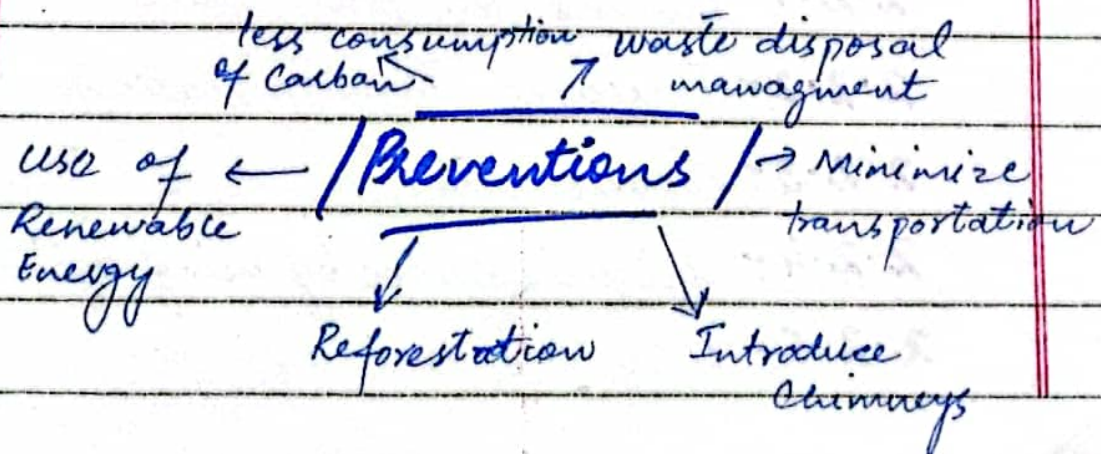 less consumption
of Carban
waste disposal
managment
Use of
Renewable
Energy
Preventions
Minimize
transportation
Reforestration
Introduce
Chimneys